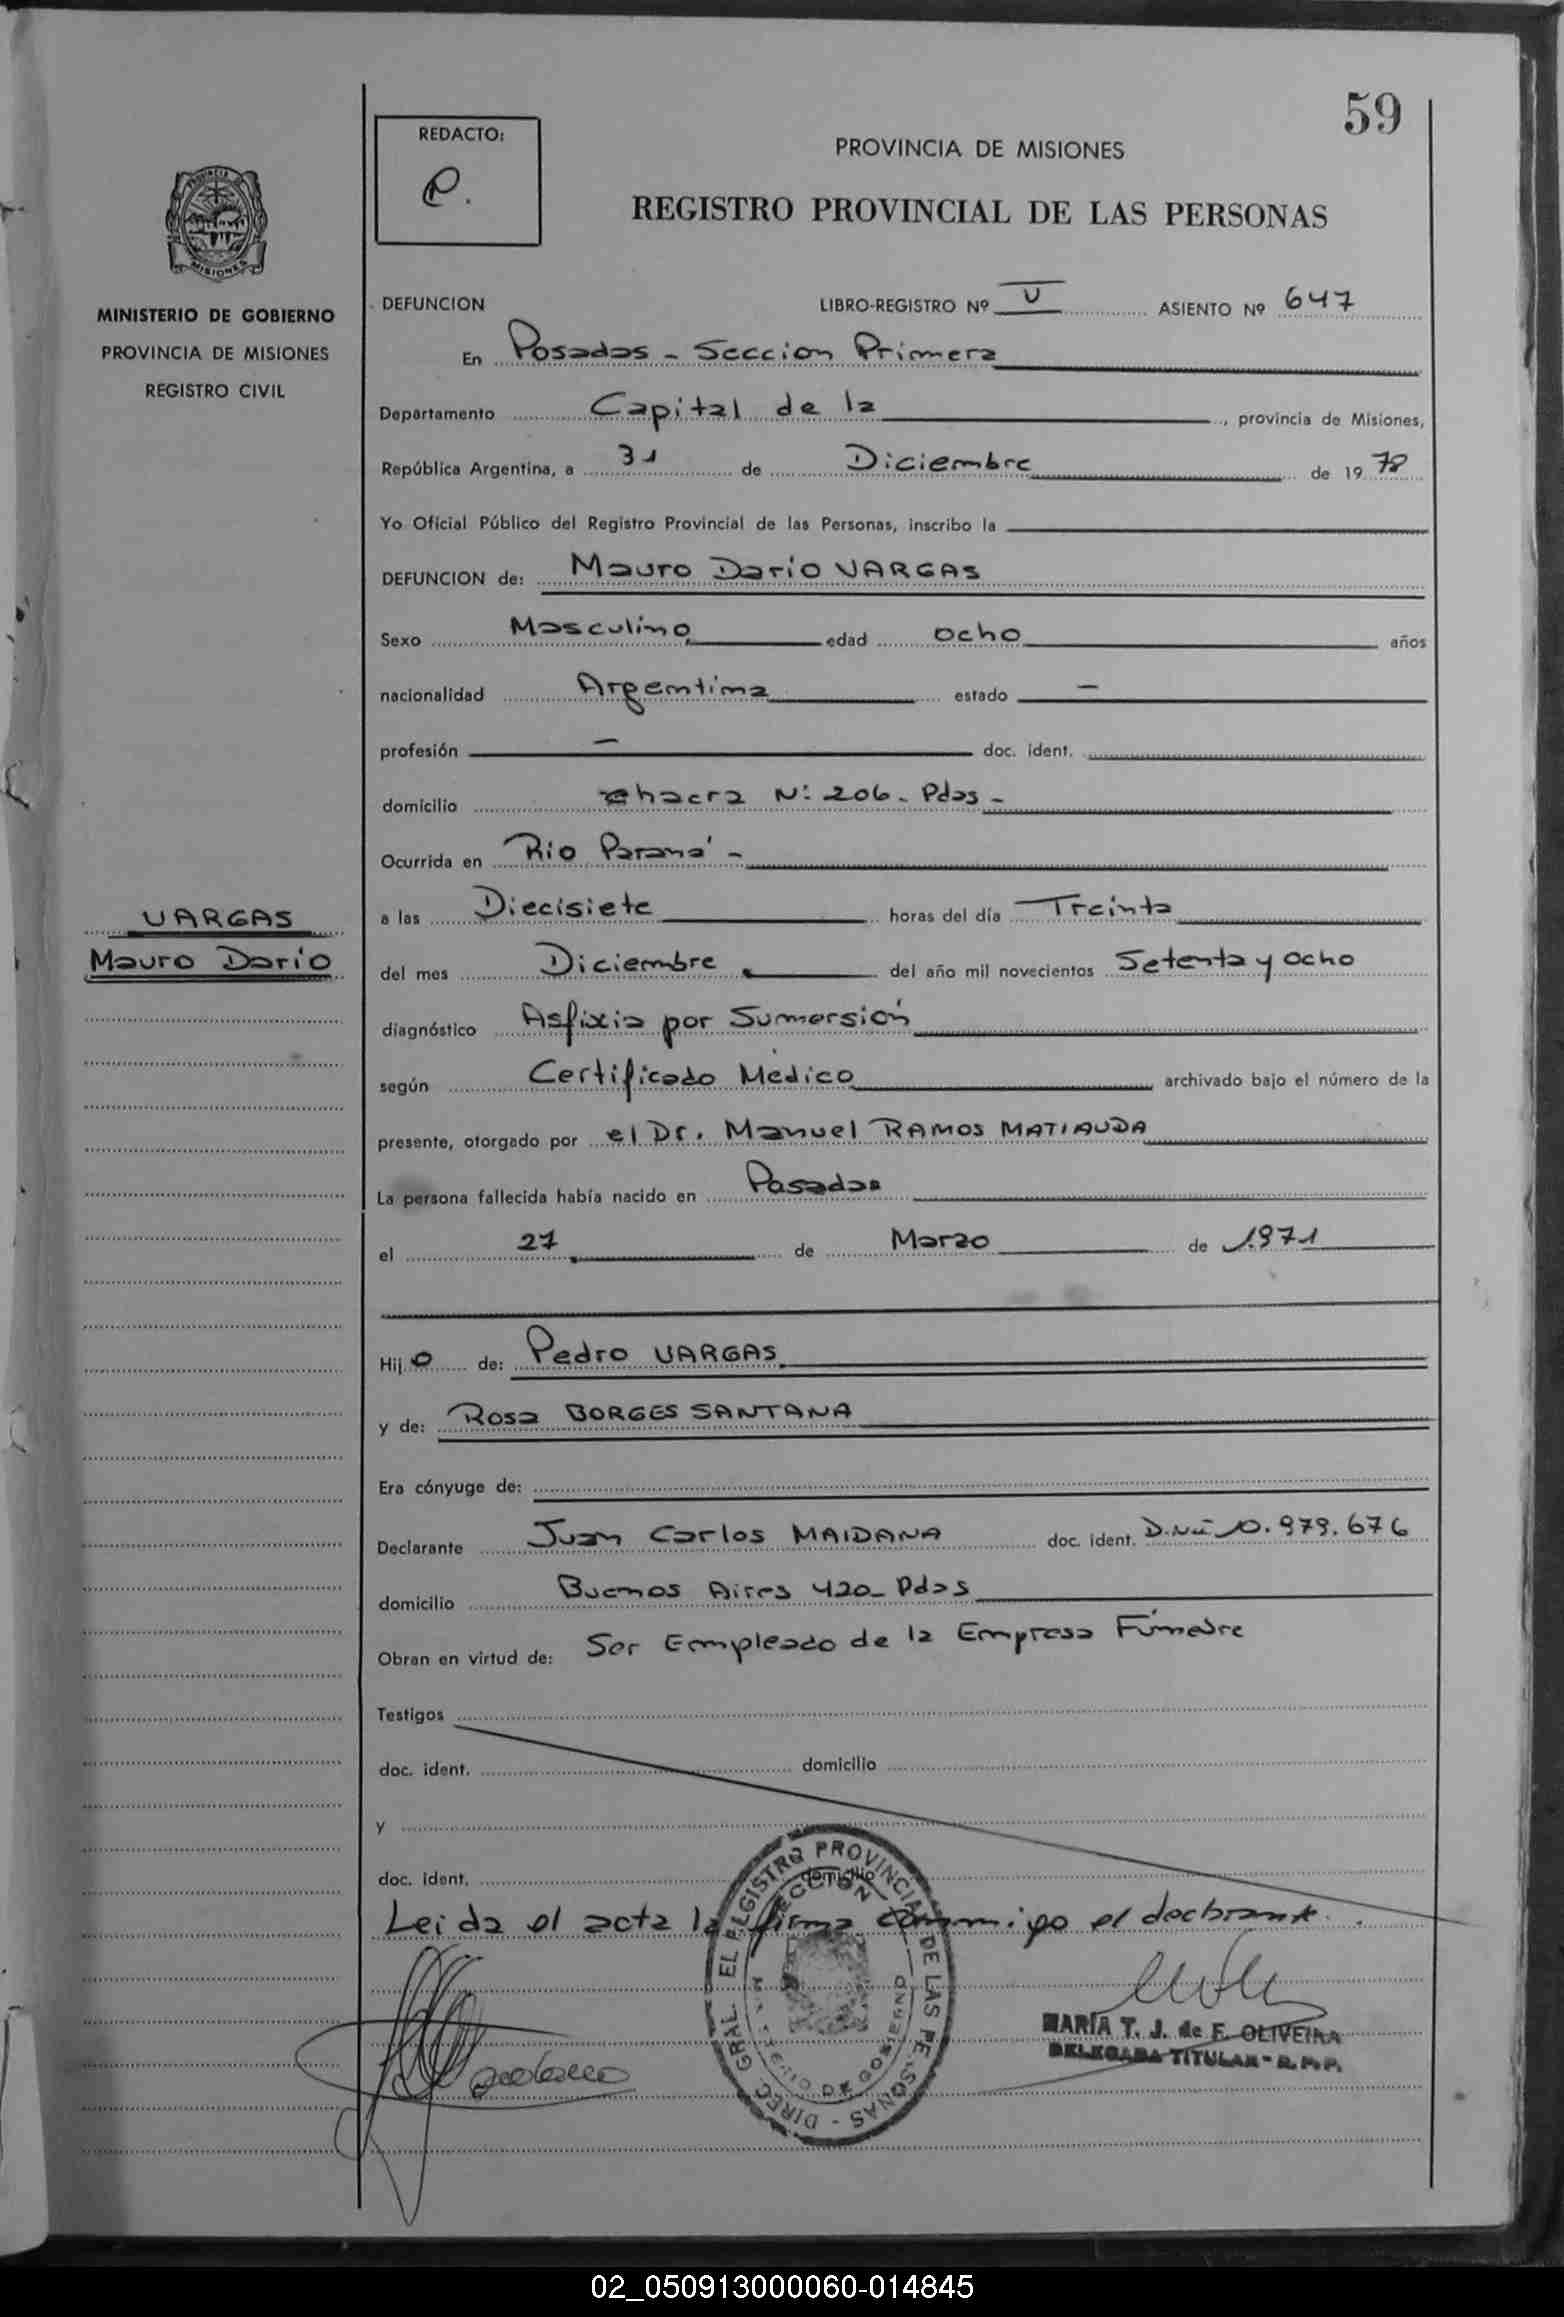 59
REDACTO:
PROVINCIA DE MISIONES
REGISTRO PROVINCIAL DE LAS PERSONAS
PROVINCIA DE
MISIONES
MINISTERIO DE GOBIERNO
PROVINCIA DE MISIONES
REGISTRO CIVIL
DEFUNCION LIBRO-REGISTRO Nº V ASIENTO Nº 647
En Posadas - Seccion Primera
Departamento Capital de la, provincia de Misiones,
República Argentina, a 31 de Diciembre de 1978
Yo Oficial Público del Registro Provincial de las Personas, inscribo la
DEFUNCION de: Mauro Dario VARGAS
Sexo Masculino edad ocho años
nacionalidad Argentina estado —
profesión — doc. ident.
domicilio chacra Nº 206. Pdas -
Ocurrida en Rio Paraná -
VARGAS
Mauro Dario
a las Diecisiete horas del día Treinta
del mes Diciembre del año mil novecientos Setenta y ocho
diagnóstico Asfixia por Sumersión
según Certificado Médico archivado bajo el número de la
presente, otorgado por el Dr. Manuel RAMOS MATIAUDA
La persona fallecida había nacido en Posadas
el 27 de Marzo de 1971
Hijo de: Pedro VARGAS
y de: Rosa BORGES SANTANA
Era cónyuge de:
Declarante Juan Carlos MAIDANA doc. ident. D.N.I 10.979.676
domicilio Buenos Aires 420 - Pdas
Obran en virtud de: Ser Empleado de la Empresa Fúnebre
Testigos
doc. ident. domicilio
y
doc. ident. domicilio
Leida el acta la firma conmigo el declarante.
DIREC. GRAL. EL REGISTRO PROVINCIAL DE LAS PERSONAS
SECCION
MINISTERIO DE GOBIERNO
MARIA T. J. de F. OLIVEIRA
DELEGADA TITULAR - R.P.P.
02_050913000060-014845